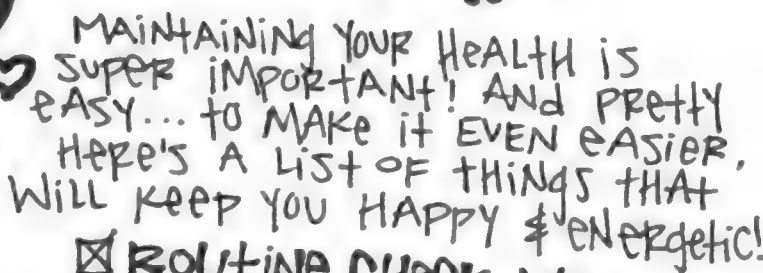 MAiNtAiNiNg YOUR HeALtH iS
SUPER iMPORtANt! ANd PRettY
eASY... tO MAKe it EVEN eASieR,
HeRe'S A LiSt OF tHiNgS tHAt
WiLL Keep YOU HAPPY & eNeRgetic!
ROUtiNe